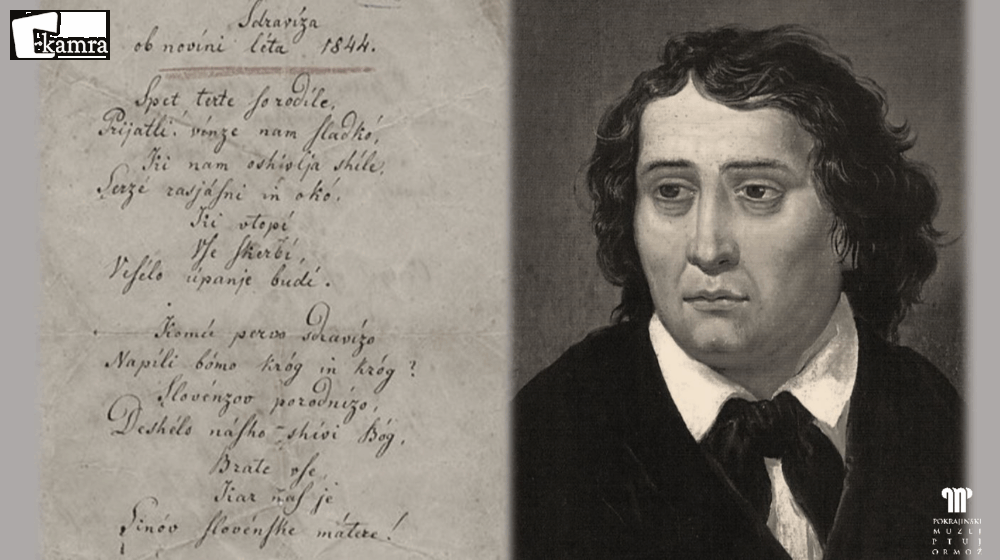 kamra
Sdravíza
ob novíni léta 1844.
Spet terte so rodíle,
Prijatli! vínze nam sladkó,
Ki nam oshivlja shíle,
Serzé rasjásni in okó,
Ki vtopí
Vse skerbí,
Vesélo úpanje budí.
Komú pervo sdravízo
Napíli bómo króg in króg?
Slovénzov porodnízo,
Deshélo násho shívi Bóg,
Brate vse,
Kar nas je
Sinóv slovénske mátere!
POKRAJINSKI
MUZEJ
PTUJ
ORMOŽ